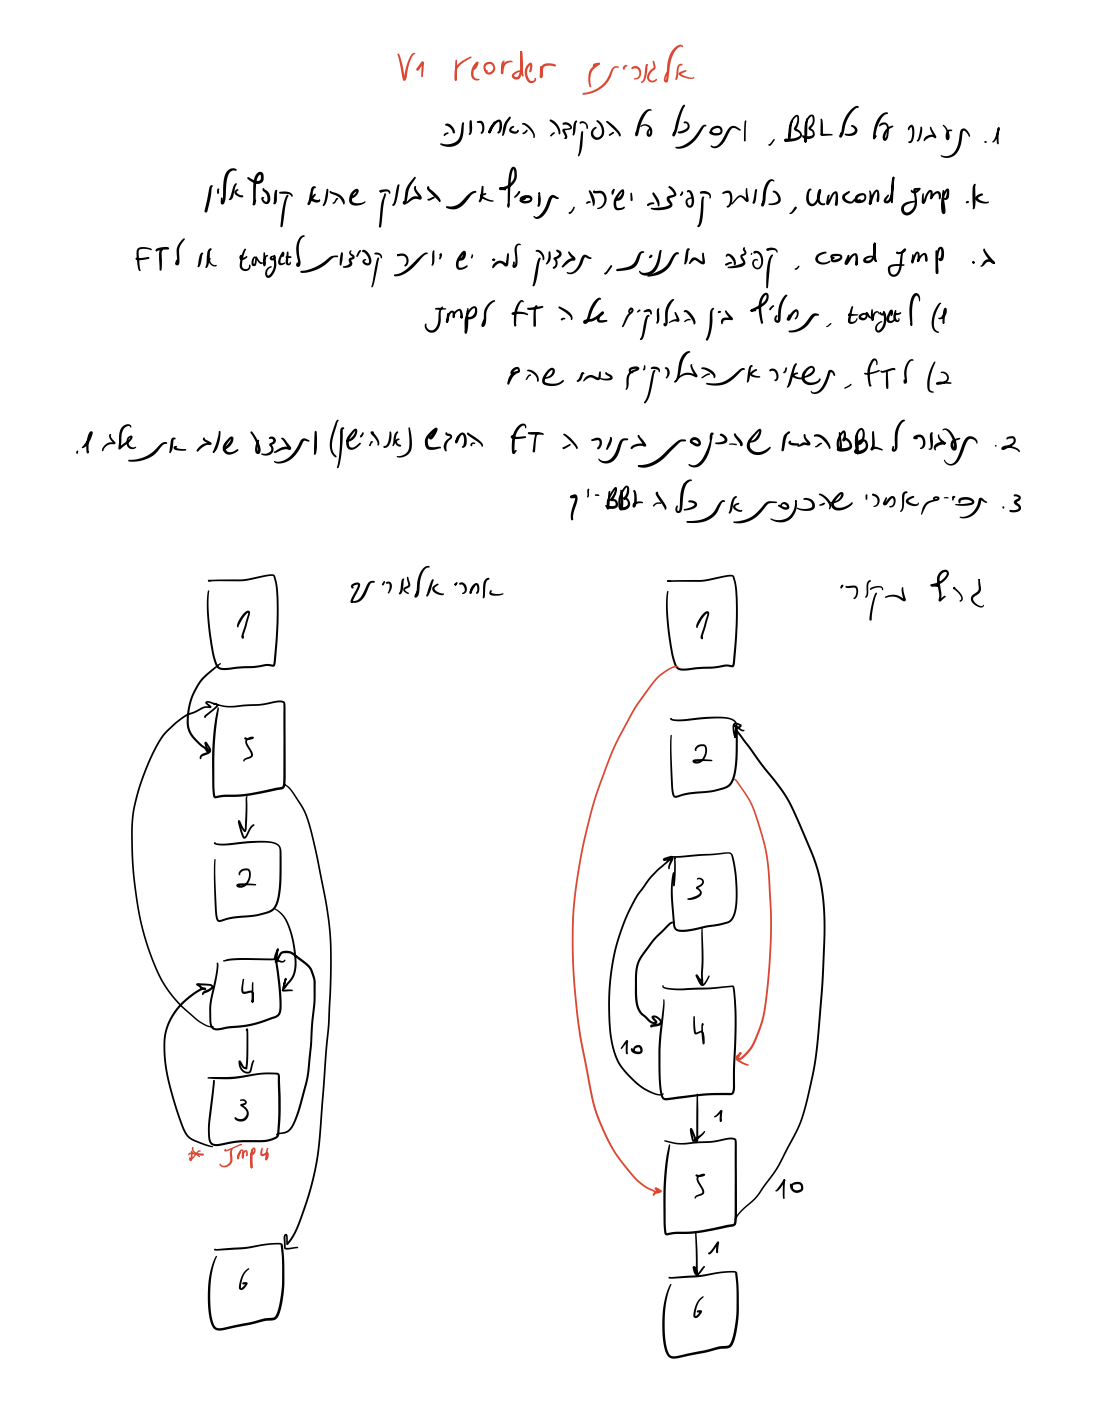 אלגוריתם reorder V1
1. תעבור על כל BBL, ותסתכל על הפקודה האחרונה
א. uncond jmp, כלומר קפיצה ישירה, תוסיף את הבלוק שהוא קופץ אליו
ב. cond jmp, קפצה מותנית, תבדוק למי יש יותר קפיצות לtarget או לFT
1) לtarget, תחליף בין הבלוקים של ה FT לJmp
2) לFT, תשאיר את הבלוקים כמו שהם
2. תעבור לBBL הבא שהכנסת בתור ה FT החדש (או הישן) ותבצע שוב את שלב 1.
3. תסיים אחרי שהכנסת את כל ה BBL-ים
גרף מקורי
אחרי אלגוריתם
1
2
3
4
10
1
5
10
1
6
1
5
2
4
3
* Jmp 4
6